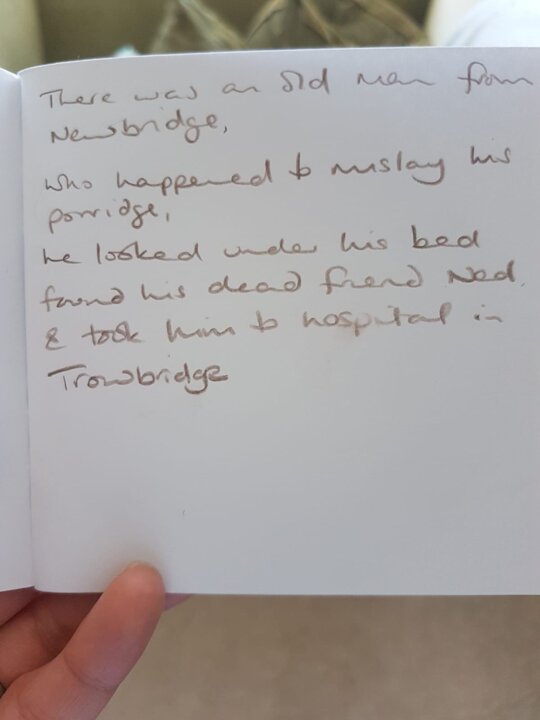 There was an old man from
Newbridge,
who happened to mislay his
porridge,
he looked under his bed
found his dead friend Ned.
& took him to hospital in
Trowbridge